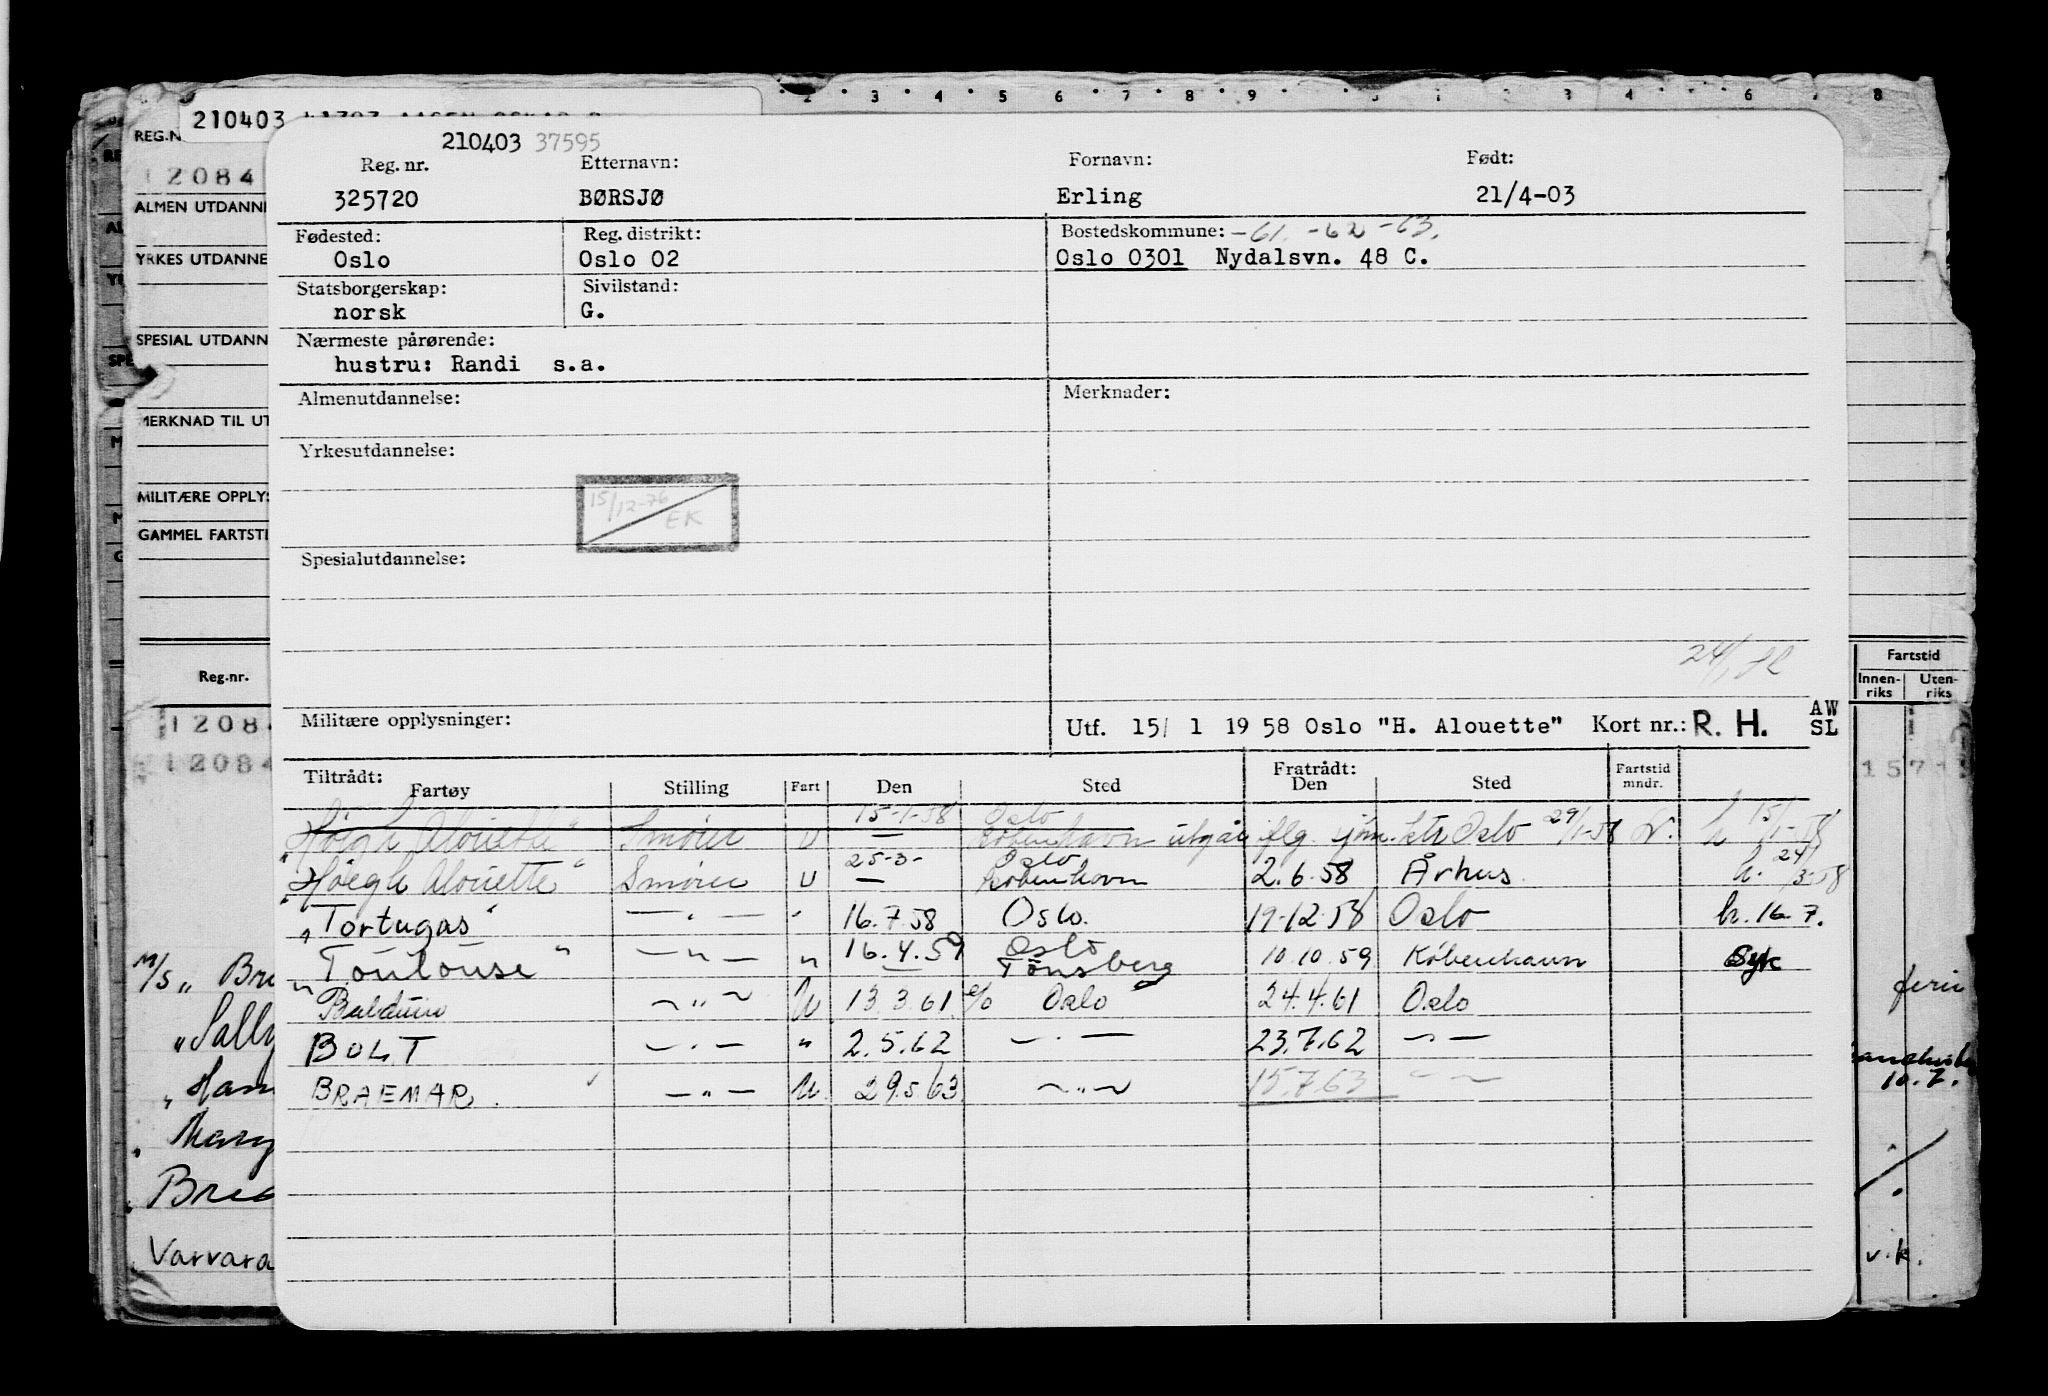 2 3 4 5 6 7 8 9 1 2 3 4 6 7 8
210403
REG.N
210403 37595
Reg. nr. Etternavn: Fornavn: Født:
12084
325720 BØRSJØ Erling 21/4-03
ALMEN UTDANNE
Fødested: Reg. distrikt: Bostedskommune: -61. -62 -63.
YRKES UTDANNE
Oslo Oslo 02 Oslo 0301 Nydalsvn. 48 C.
Statsborgerskap: Sivilstand:
norsk G.
SPESIAL UTDANN
Nærmeste pårørende:
hustru: Randi s.a.
Almenutdannelse: Merknader:
MERKNAD TIL UT
Yrkesutdannelse:
MILITÆRE OPPLYS
15/12-76
EK
GAMMEL FARTSTI
Spesialutdannelse:
24/1
Reg.nr. Fartstid
Innen-riks Uten-riks
Militære opplysninger: Utf. 15/ 1 19 58 Oslo "H. Alouette" Kort nr.: R. H. AW SL
1208
12084 157
Tiltrådt: Fratrådt:
Fartøy Stilling Fart Den Sted Den Sted Fartstid mndr.
15-1-58 Oslo
"Høegh Alouette" Smører U — København utgår flg. sjøm.ktr Oslo 29/1-58 h 15/1-58
25-3- Oslo
"Høegh Alouette" Smører U — København 2.6.58 Århus. h. 24/3-58
"Tortugas" — " — " 16.7.58 Oslo. 19-12-58 Oslo h. 16.7.
"Toulouse" — " — " 16.4.59 Oslo Tønsberg 10.10.59 København Syk
M/S " Br ferie
Balduin — " — U 13.3.61 e/o Oslo 24.4.61 Oslo
"Sally
BOLT — " — " 2.5.62 — " — 23.7.62 — " —
"Han 10.7.
BRAEMAR. — " — U. 29.5.63 — " — 15.7.63 — " —
Mary
Bre
Varvara v.k.